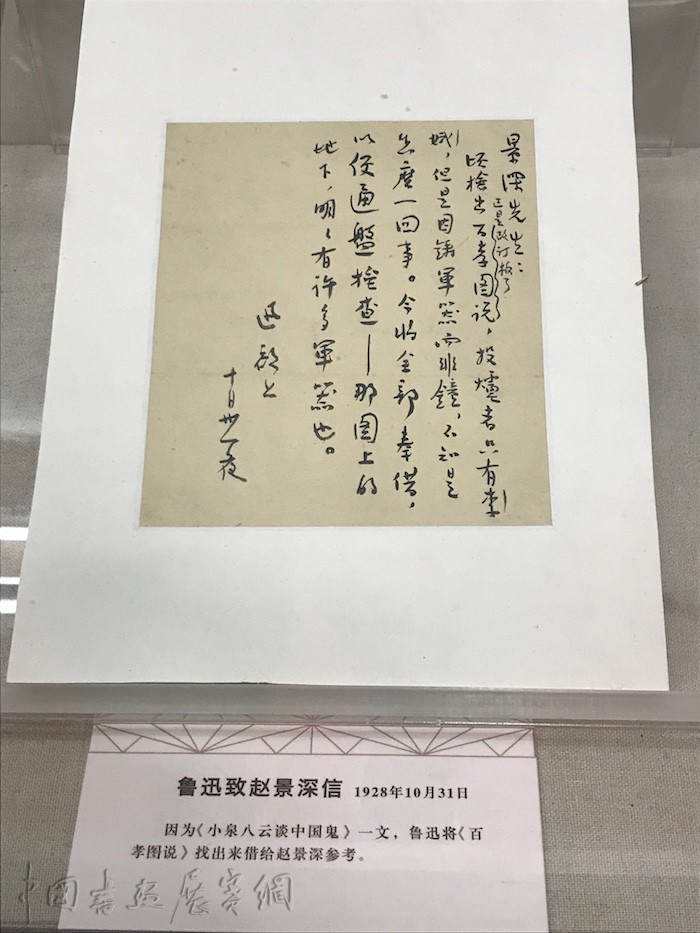 景深先生：
頃撿出百孝圖说，投爐者只有李
已是改订板了
娥，但是因鑄軍器而非鐘，不知是
怎麼一回事。今將全部奉借，
以便通盤撿查——那圖上的
地下，明々有许多軍器也。
迅啟上
十月卅一夜
鲁迅致赵景深信 1928年10月31日
因为《小泉八云谈中国鬼》一文，鲁迅将《百
孝图说》找出来借给赵景深参考。
中國書法展賽網